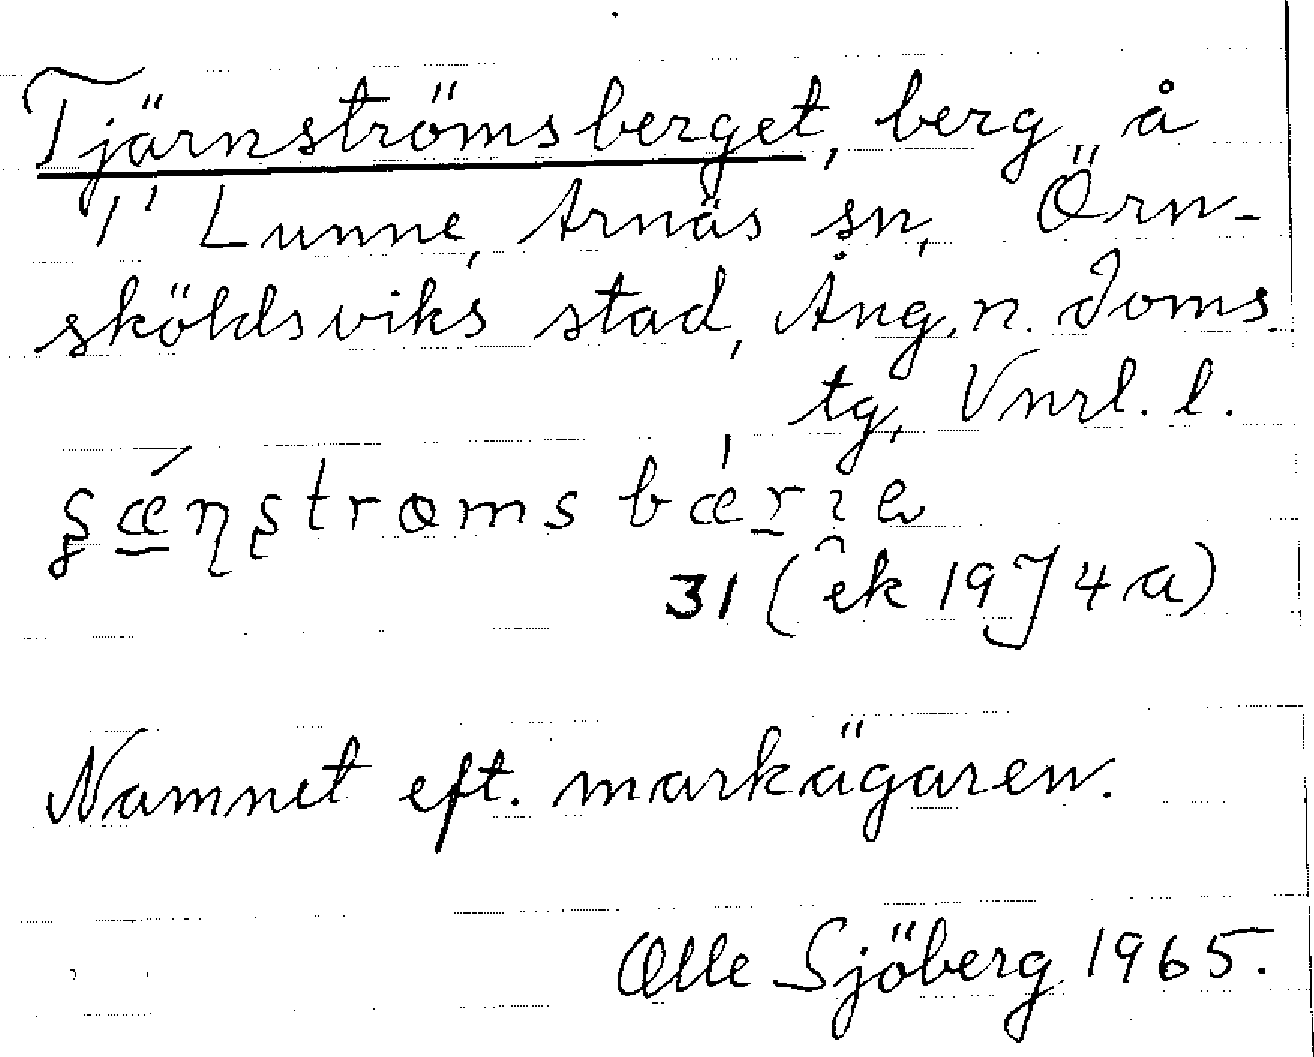 Tjärnströmsberget, berg å
1' Lunne, Arnäs sn, Örn-
sköldsviks stad, Ång. n. doms.
tg, Vnrl. l.
bǽrıe
31 (ek 19J4a)
Namnet eft. markägaren.
Olle Sjöberg 1965.